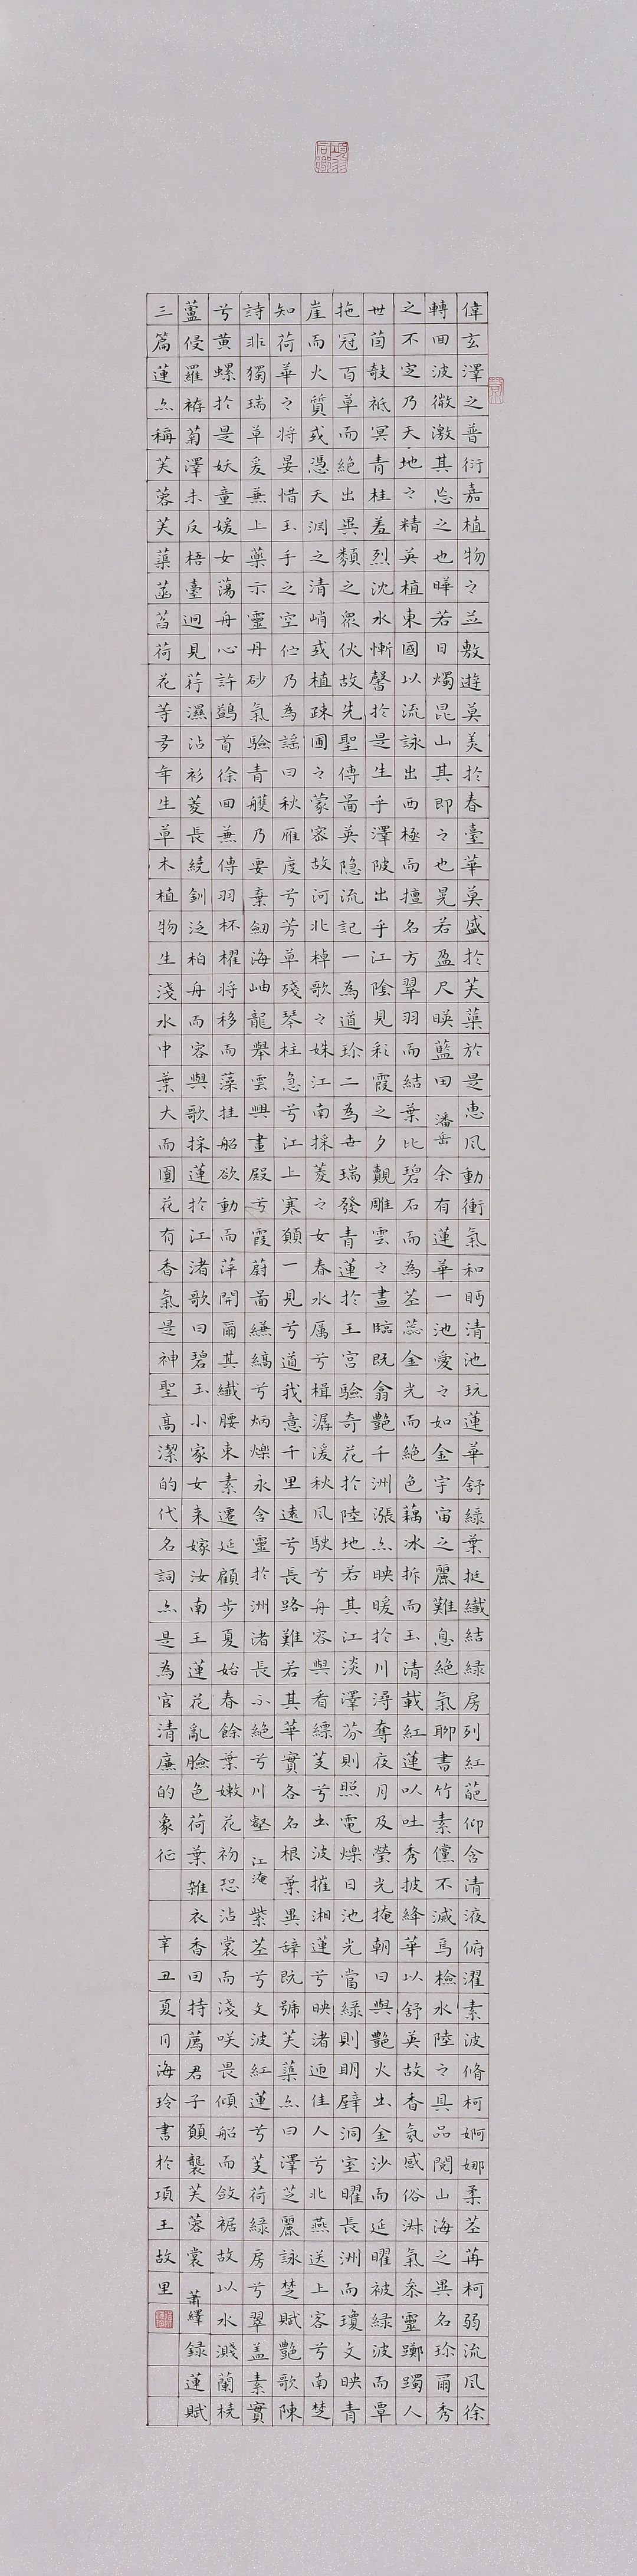 偉玄澤之普衍嘉植物之並敷遊莫美於春臺華莫盛於芙蕖於是惠風動衝氣和眄清池玩蓮華舒綠葉挺纖結綠房列紅葩仰含清液俯濯素波脩柯婀娜柔莖苒柯弱流風徐
轉回波微激其之也曄若日燭昆山其即之也晃若盈尺暎藍田潘岳余有蓮華一池愛之如金宇宙之麗難息絕氣聊書竹素儻不滅焉檢水陸之具品閱山海之異名珍爾秀
之不定乃天地之精英植東國以流詠出西極而擅名方翠羽而結葉比碧石而為莖蕊金光而絕色藕冰拆而玉清載紅蓮以吐秀披絳華以舒英故香氛感俗淋氣參靈躑躅人
世茵攲祗冥青桂羞烈沈水慚馨於是生乎澤陂出乎江陰見彩霞之夕覿雕雲之晝臨既翕艷千洲漲亦映曖於川潯奪夜月及熒光掩朝日與艷火出金沙而延曜被綠波而覃
拖冠百草而絕出異類之眾伙故先聖傳啚英隐流記一為道珍二為世瑞發青蓮於王宮驗奇花於陸地若其江淡澤芬則照電爍日池光當綠則明壁洞室曜長洲而瓊文映青
崖而火質或憑天淵之清峭或植疎圃之蒙密故河北棹歌之姝江南採菱之女春水厲兮楫潺湲秋風駛兮舟容與看縹芰兮出波摧湘蓮兮映渚迎佳人兮北燕送上客兮南楚
知荷華之將晏惜玉手之空佇乃為謡曰秋雁度兮芳草殘琴柱急兮江上寒願一見兮道我意千里遠兮長路難若其華實各名根葉異辭既號芙蕖亦曰澤芝麗詠楚賦艷歌陳
詩非獨瑞草爰兼上藥示靈丹砂氣驗青雘乃要棄劒海岫龍舉雲興畫殿兮霞蔚啚縑縞兮炳爍永含靈於洲渚長不絕兮川壑江淹紫莖兮文波紅蓮兮芰荷綠房兮翠盖素實
兮黄螺於是妖童媛女蕩舟心許鷁首徐回兼傳羽杯櫂將移而藻挂船欲動而萍開爾其纖腰束素遷延顧步夏始春餘葉嫩花初恐沾裳而淺咲畏傾船而斂裾故以水濺蘭橈
蘆侵羅袸菊澤未反梧臺迥見荇濕沾衫菱長繞釧泛柏舟而容與歌採蓮於江渚歌曰碧玉小家女来嫁汝南王蓮花亂臉色荷葉雜衣香因持薦君子願襲芙蓉裳蕭繹録蓮賦
三篇蓮亦稱芙蓉芙蕖菡萏荷花等多年生草木植物生淺水中葉大而圓花有香氣是神聖高潔的代名詞亦是為官清廉的象征辛丑夏月海玲書於項王故里